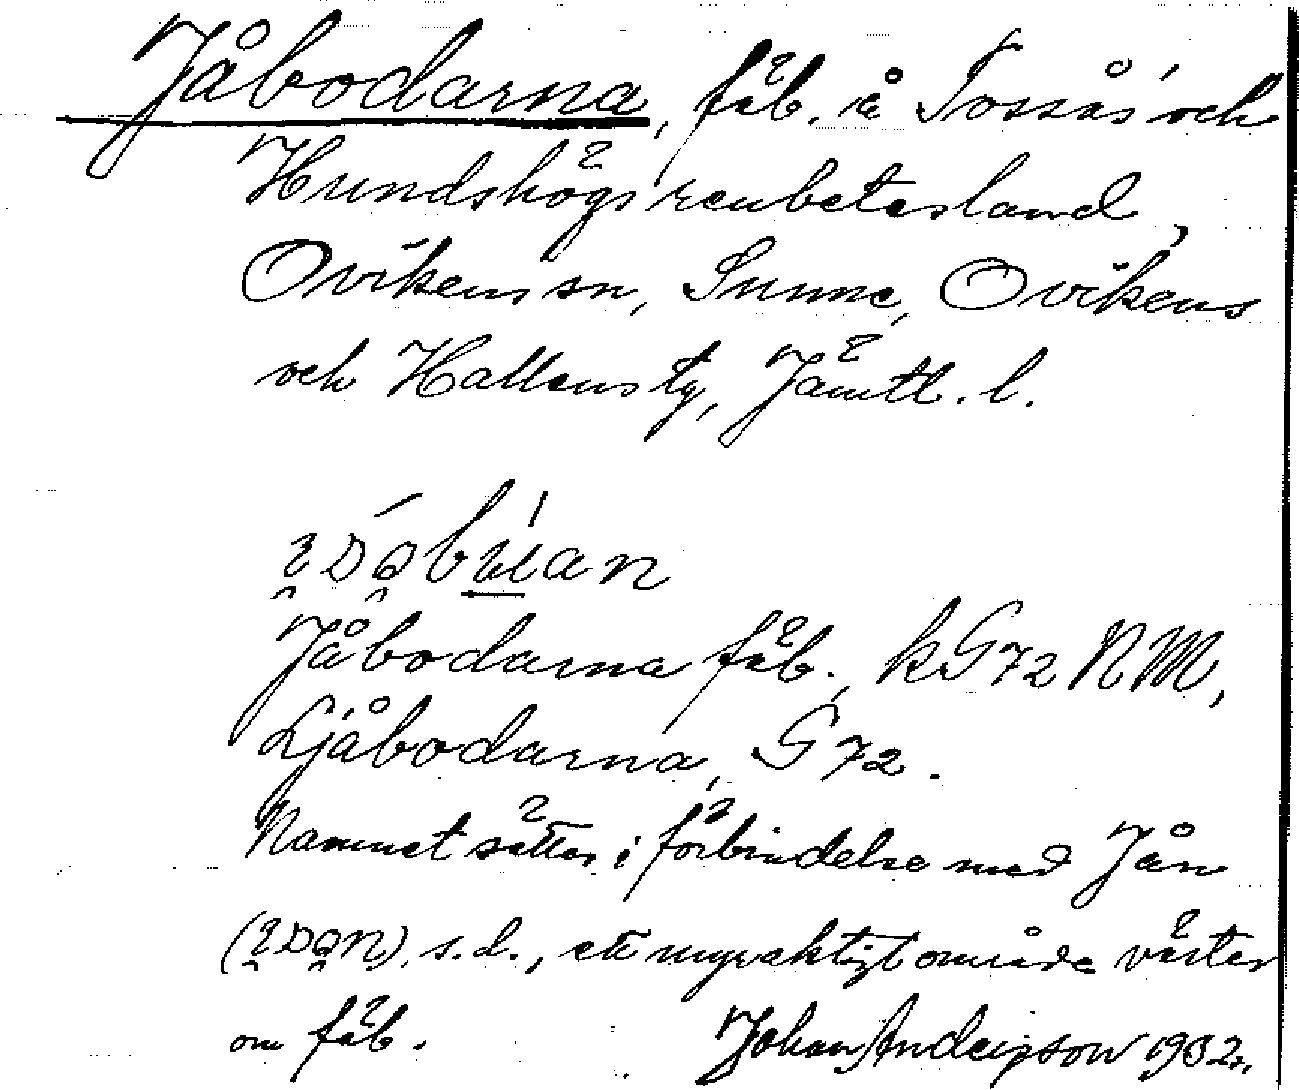 Jåbodarna, fäb. å Tossås' och
Hundshögs renbetesland,
Ovikens sn, Sunne, Ovikens
och Hallens tg, Jämtl. l.
Jåbodarna fäb., kG72 NM,
Ljåbodarna, G72.
Namnet sättes i förbindelse med Jån
s.d., ett myraktigt område väster
om fäb. Johan Anderpson 1932.